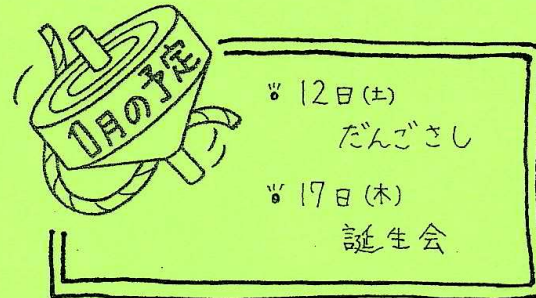 1月の予定
12日(土)
だんごさし
17日(木)
誕生会